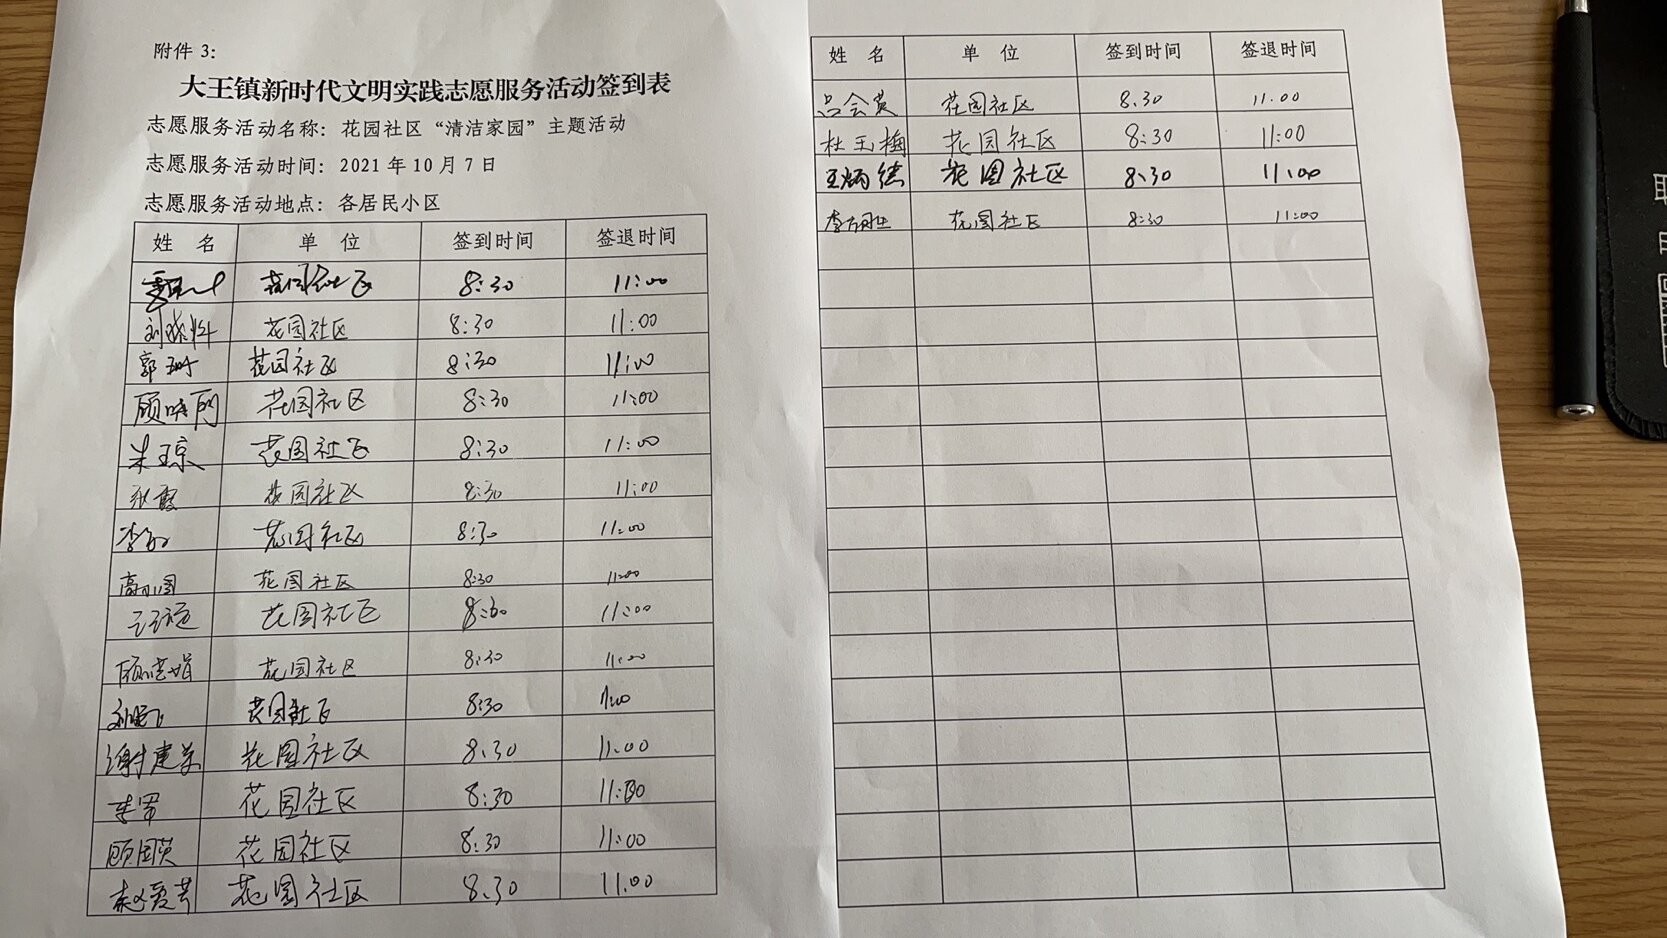 附件 3:
大王镇新时代文明实践志愿服务活动签到表
志愿服务活动名称：花园社区“清洁家园”主题活动
志愿服务活动时间：2021 年 10 月 7 日
志愿服务活动地点：各居民小区
姓 名 单 位 签到时间 签退时间
花园社区 8:30 11:00
花园社区 8:30 11:00
花园社区 8:30 11:00
花园社区 8:30 11:00
朱琼 花园社区 8:30 11:00
张霞 花园社区 8:30 11:00
花园社区 8:30 11:00
花园社区 8:30 11:00
花园社区 8:30 11:00
花园社区 8:30 11:00
花园社区 8:30 11:00
谢建 花园社区 8:30 11:00
花园社区 8:30 11:00
顾国英 花园社区 8:30 11:00
赵爱芹 花园社区 8:30 11:00
姓 名 单 位 签到时间 签退时间
吕会英 花园社区 8:30 11:00
杜玉梅 花园社区 8:30 11:00
王炳德 花园社区 8:30 11:00
花园社区 8:30 11:00